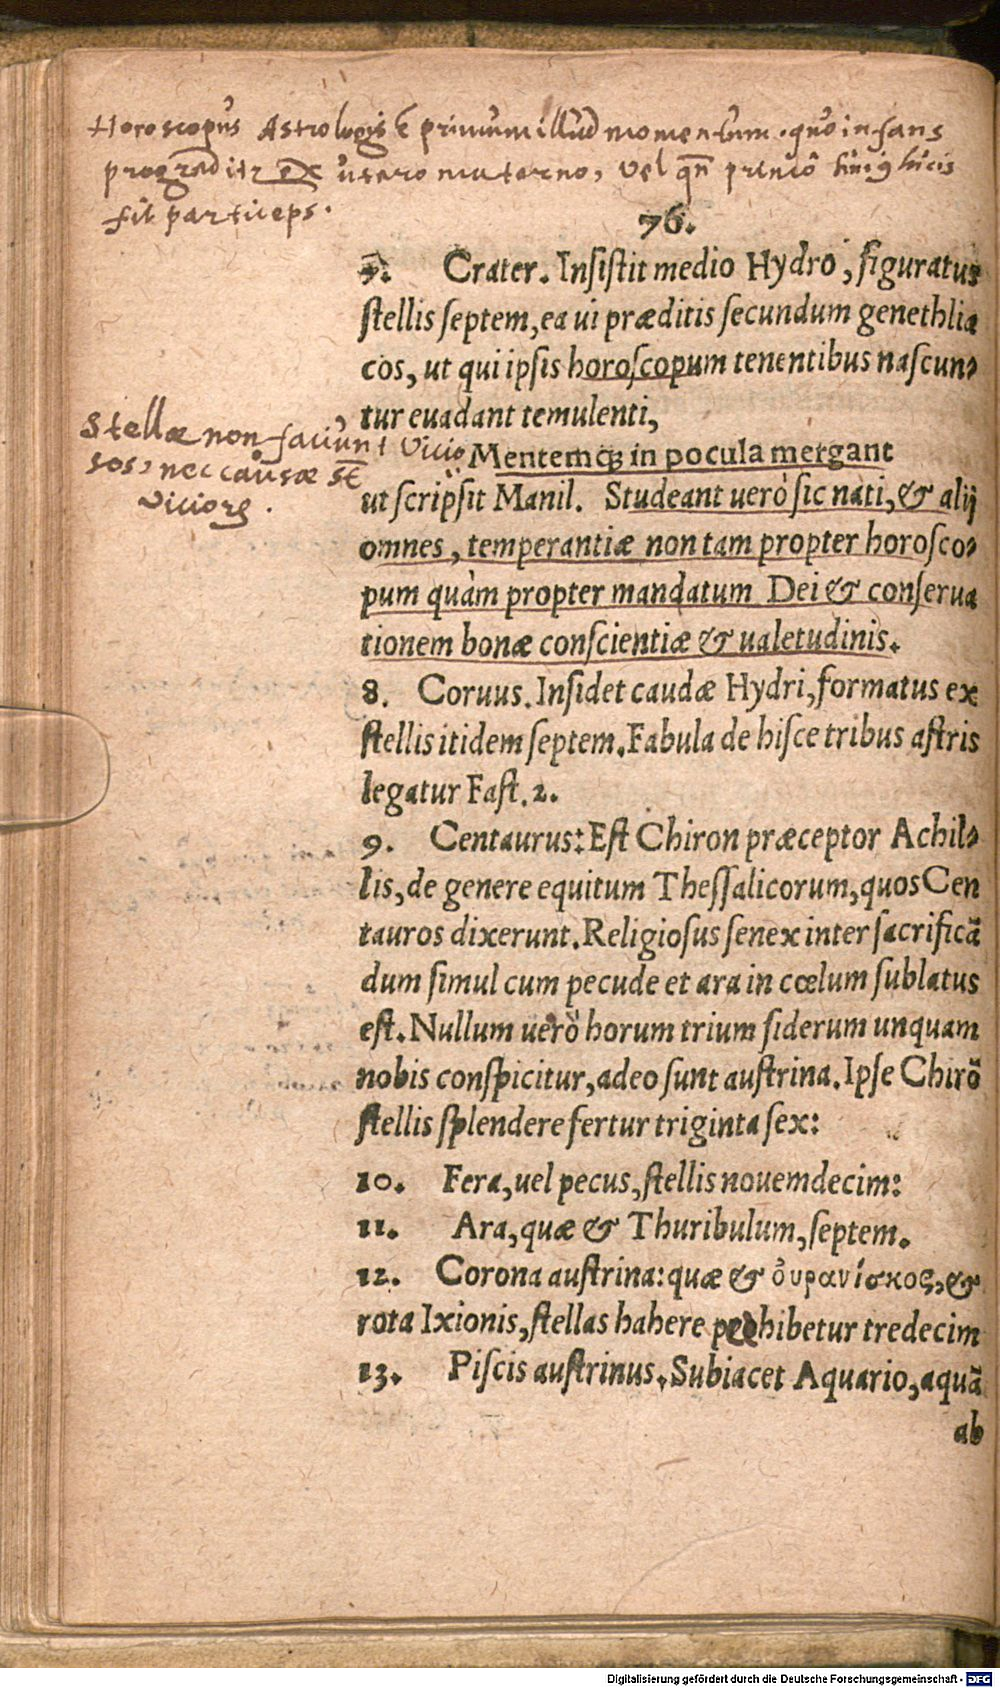 Horoscopus Astrologis ē primum illud momentum. quo infans
progreditr ex utero materno, vel qñ primō lucis
fit particeps.
76.
7. Crater. Insistit medio Hydro, figuratus
stellis septem, ea ui præditis secundum genethlia
cos, ut qui ipsis horoscopum tenentibus nascun-
tur euadant temulenti,
Stellæ non faciunt vicio
sos, nec causæ st̄
viciorꝝ.
Mentemq́ꝫ in pocula mergant
ut scripsit Manil. Studeant uerò sic nati, & alij
omnes, temperantiæ non tam propter horosco-
pum quàm propter mandatum Dei & conserua
tionem bonæ conscientiæ & ualetudinis.
8. Coruus. Insidet caudæ Hydri, formatus ex
stellis itidem septem. Fabula de hisce tribus astris
legatur Fast. 2.
9. Centaurus: Est Chiron præceptor Achil-
lis, de genere equitum Thessalicorum, quos Cen
tauros dixerunt. Religiosus senex inter sacrificā
dum simul cum pecude et ara in cœlum sublatus
est. Nullum uerò horum trium siderum unquam
nobis conspicitur, adeo sunt austrina. Ipse Chirō
stellis splendere fertur triginta sex:
10. Fera, uel pecus, stellis nouemdecim:
11. Ara, quæ & Thuribulum, septem.
12. Corona austrina: quæ & ὀυρανίσκος, &
rota Ixionis, stellas habere perhibetur tredecim
13. Piscis austrinus. Subiacet Aquario, aquā
ab
Digitalisierung gefördert durch die Deutsche Forschungsgemeinschaft - DFG